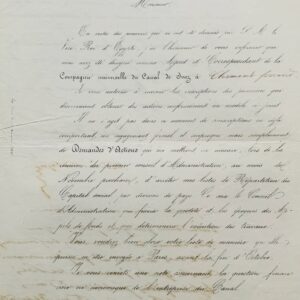 Monsieur
En vertu des pouvoirs qui m'ont été donnés par S. A. le
Vice-Roi d'Egypte, j'ai l'honneur de vous informer que
vous avez été désigné comme Agent et Correspondant de la
Compagnie universelle du Canal de Suez à Clermont ferrand
Je vous autorise à recevoir les inscriptions des personnes qui
désireraient obtenir des actions conformément au modèle ci-joint
Il ne s'agit pas dans ce moment de souscriptions
comportant un engagement formel et réciproque mais simplement
de Demandes d'Actions qui me mettent en mesure, lors de la
réunion du premier conseil d'Administration, au mois de
Novembre prochain, d'arrêter une liste de Répartition du
Capital social
d'Administration
de fonds et pour déterminer l'exécution des travaux.
Vous voudrez bien clore votre liste de manière qu'elle
puisse être envoyée à Paris, avant la fin d'Octobre.
Je vous remets une note concernant la question financière
de l'entreprise du Canal